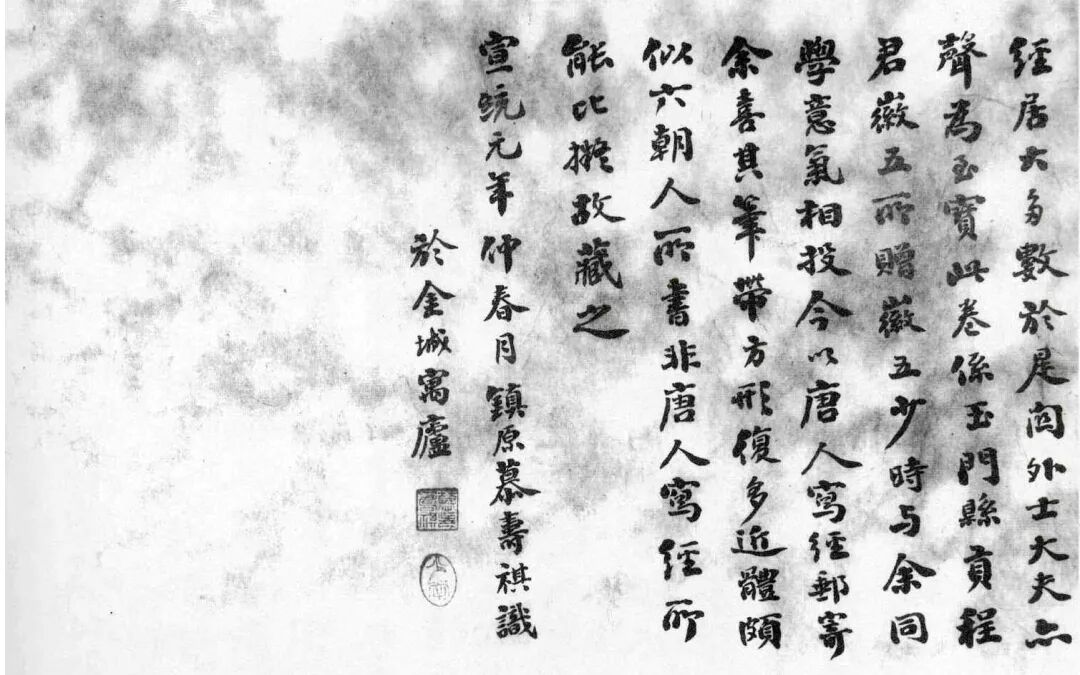 經居大多數於是關外士大夫亦
聲為至寶此卷係玉門縣貢程
君徽五所贈徽五少時与余同
學意氣相投今以唐人寫經郵寄
余喜其筆帶方形復多近體頗
似六朝人所書非唐人寫經所
能比擬故藏之
宣統元年仲春月鎮原慕壽祺識
於金城寓廬